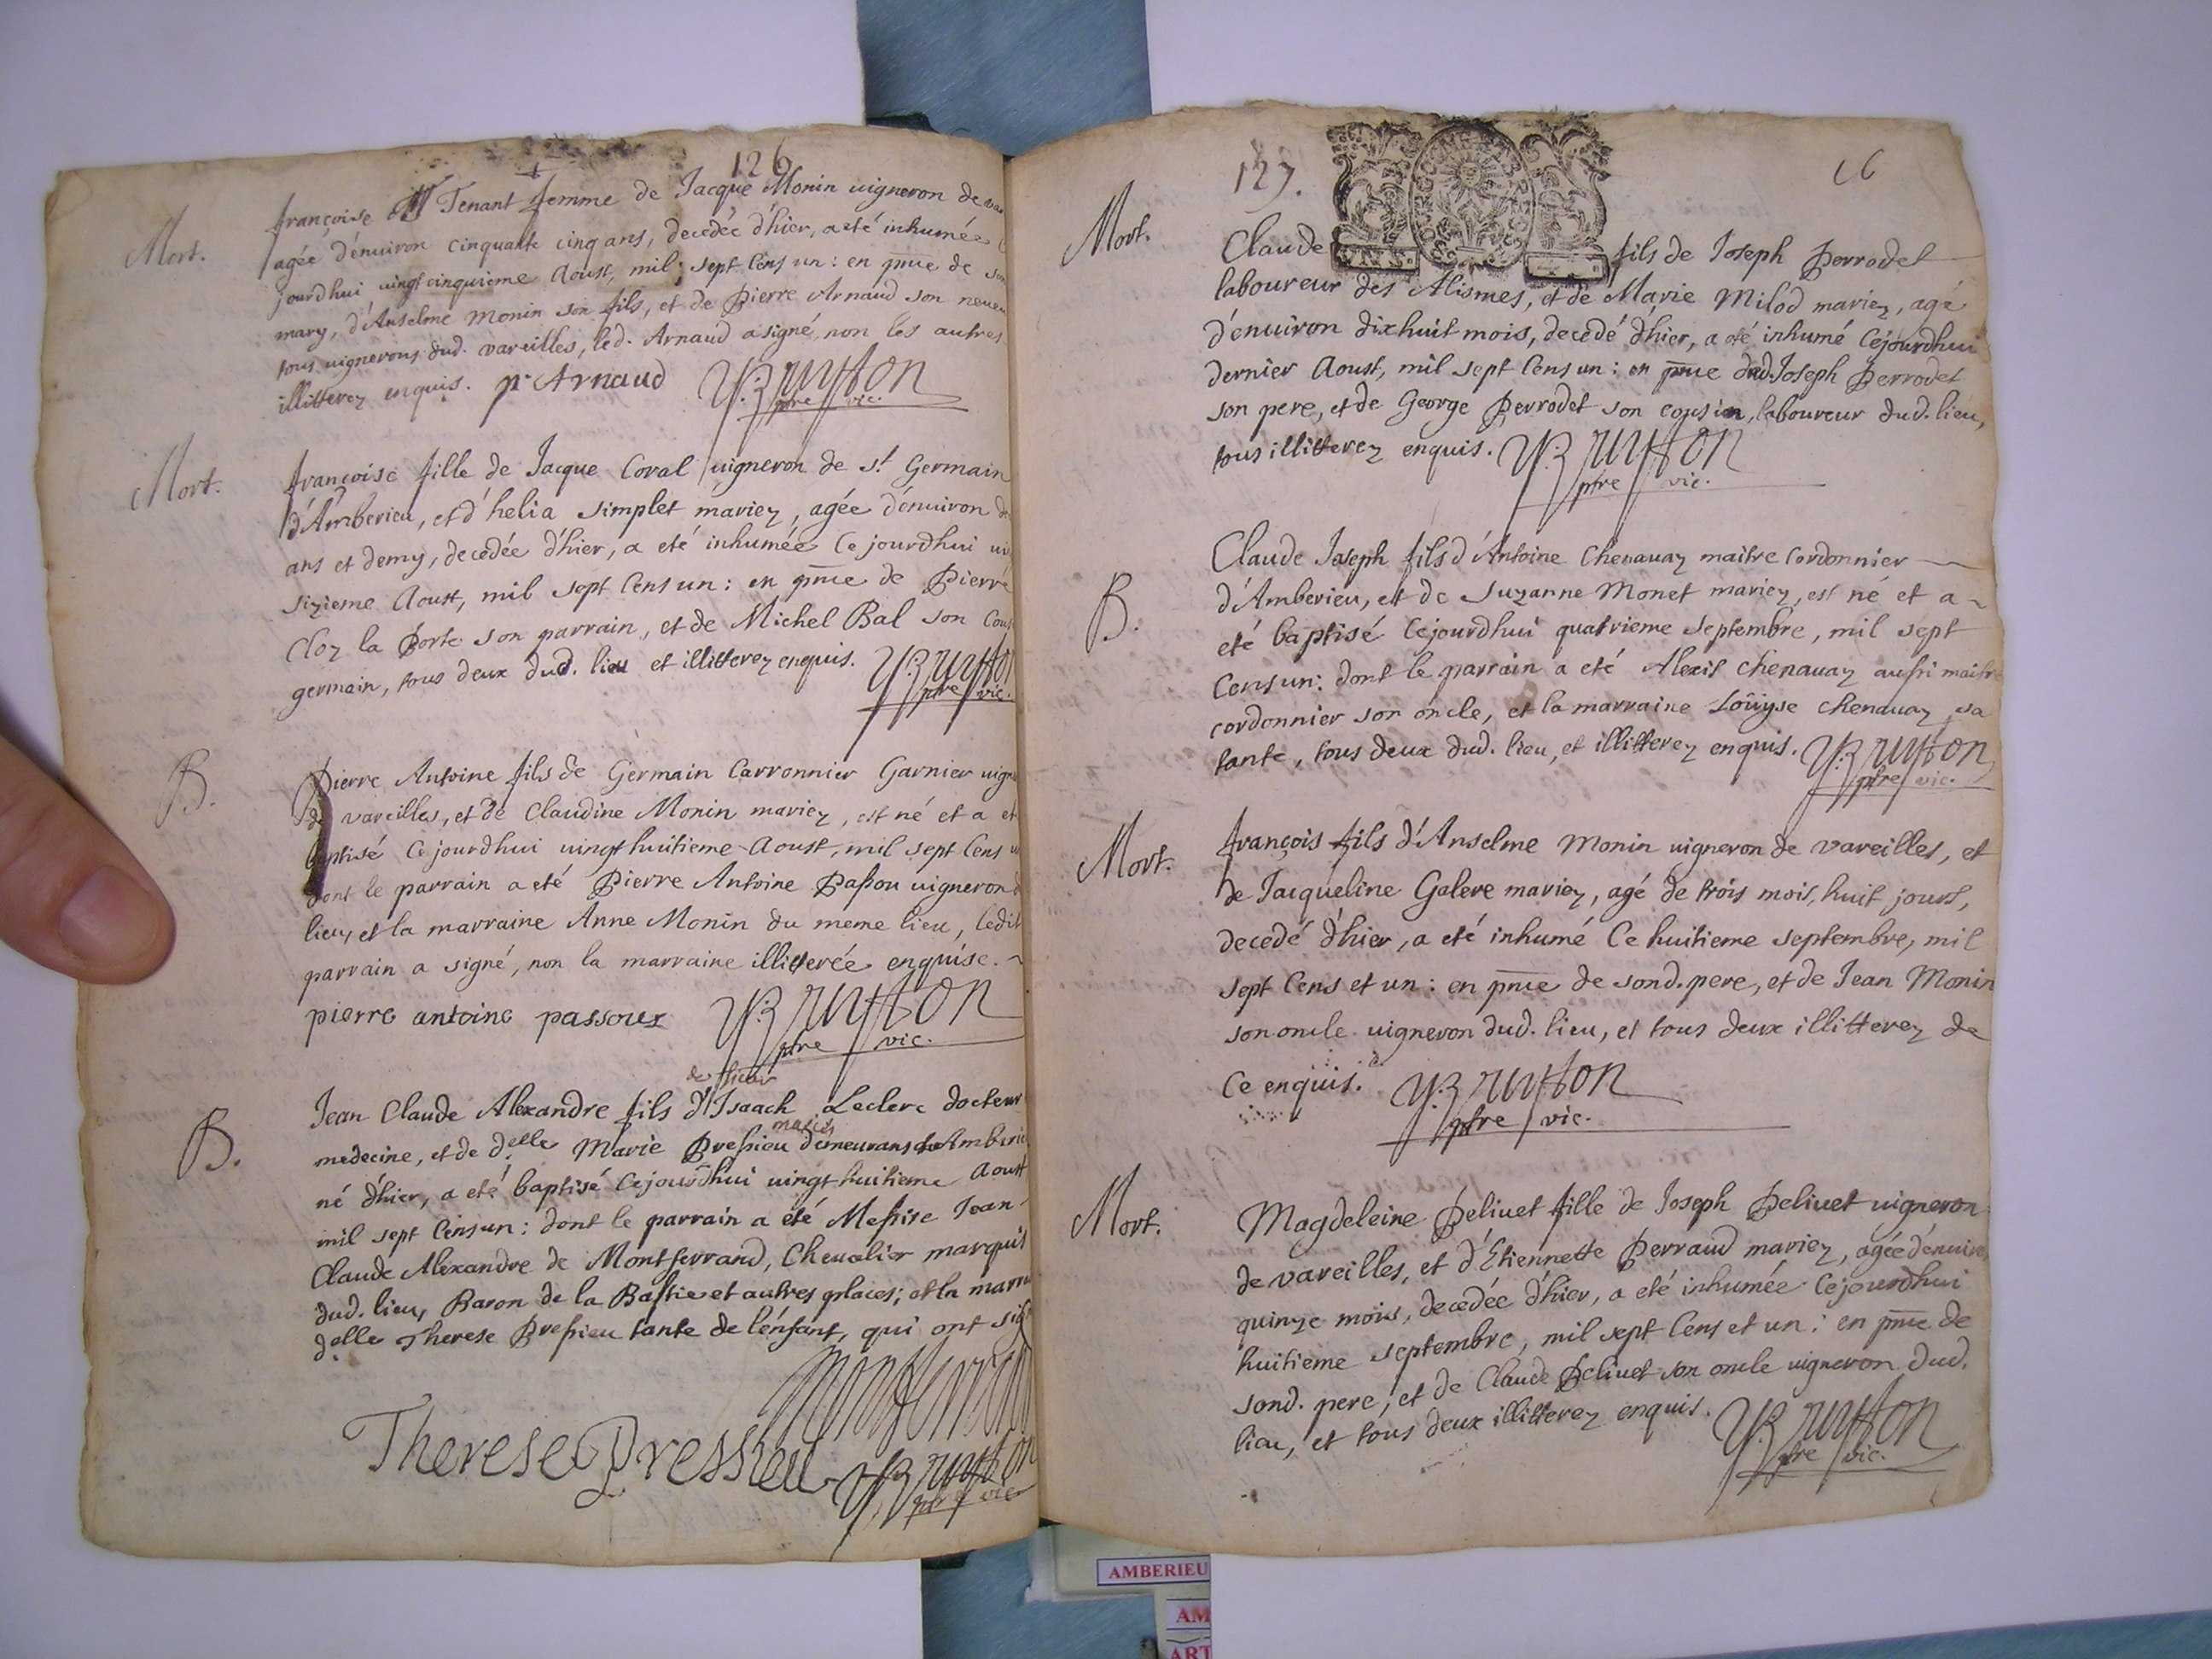 126
Mort.
françoise Tenant femme de Jacque Monin uigneron de
agée d'enuiron cinquante cinq ans, decedée d'hier, a eté inhumée
jourdhui uingt cinquieme Aoust, mil sept Cens un : en pnce de son
mary, d'Anselme Monin son fils, et de Pierre Arnaud son neueu
tous uignerons dud. vareilles, led. Arnaud a signé, non les autres
illitterez enquis. p Arnaud Bruyston
ptre vic.
Mort.
françoise fille de Jacque Coval uigneron de st Germain
d'Amberieu, et d'helia simplet mariez, agée d'enuiron
ans et demy, decedée d'hier, a eté inhumée Ce jourdhui
sizieme Aoust, mil sept Cens un : en pnce de Pierre
Cloz la Porte son parrain, et de Michel Bal son
germain, tous deux dud. lieu et illitterez enquis.
ptre vic.
B.
Pierre Antoine fils de Germain Carronnier Garnier
de vareilles, et de Claudine Monin mariez, est né et a
baptisé Ce jourdhui uingt huitieme Aoust, mil sept Cens
dont le parrain a eté Pierre Antoine Passou uigneron
lieu, et la marraine Anne Monin du meme lieu, ledit
parrain a signé, non la marraine illitterée enquise.
pierre antoine passoux
ptre vic.
de sieur
B.
Jean Claude Alexandre fils d'Isaach Leclerc docteur
mariez
medecine, et de delle Marie Pressieu demeurans
né d'hier, a eté baptisé Cejourdhui uingt huitieme Aoust
mil sept Cens un : dont le parrain a eté Messire Jean
Claude Alexandre de Montferrand, Cheualier marquis
dud. lieu, Baron de la Bastie et autres places ; et la
delle Therese Pressieu tante de l'enfant, qui ont
Montferrand
Therese Pressieu
ptre vic
127.
16
Mort.
Claude fils de Joseph Perrodet
laboureur des Alismes, et de Marie Milod mariez, agé
d'enuiron dixhuit mois, decedé d'hier, a eté inhumé Cejourdhui
dernier Aoust, mil sept Cens un : en pnce dud. Joseph Perrodet
son pere, et de George Perrodet son cousin, laboureur dud. lieu,
tous illitterez enquis.
ptre vic.
B.
Claude Joseph fils d'Antoine Chenauaz maitre Cordonnier
d'Amberieu, et de Suzanne Monet mariez, est né et a
eté baptisé Cejourdhui quatrieme Septembre, mil sept
Cens un : dont le parrain a eté Alexis Chenauaz aussi maitre
cordonnier son oncle, et la marraine Loüyse Chenauaz sa
tante, tous deux dud. lieu, et illitterez enquis.
ptre vic.
Mort.
françois fils d'Anselme Monin uigneron de vareilles, et
de Jacqueline Galere mariez, agé de trois mois, huit jours,
decedé d'hier, a eté inhumé Ce huitieme septembre, mil
sept Cens et un : en pnce de sond. pere, et de Jean Monin
son oncle uigneron dud. lieu, et tous deux illitterez de
Ce enquis.
ptre vic.
Mort.
Magdeleine Peliuet fille de Joseph Peliuet uigneron
de vareilles, et d'Etiennette Perraud mariez, agée d'enuiron
quinze mois, decedée d'hier, a eté inhumée Cejourdhui
huitieme septembre, mil sept Cens et un : en pnce de
sond. pere, et de Claude Peliuet son oncle uigneron dud.
lieu, et tous deux illitterez enquis.
ptre vic.
AMBERIEU
AM
ART